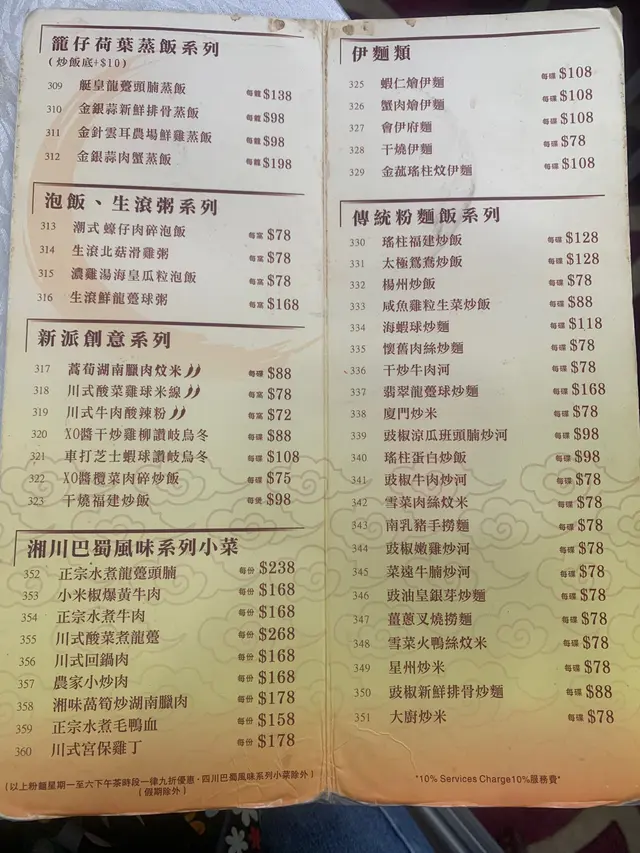 籠仔荷葉蒸飯系列
(炒飯底+$10)
309 艇皇龍躉頭腩蒸飯 每籠 $138
310 金銀蒜新鮮排骨蒸飯 每籠 $98
311 金針雲耳農場鮮雞蒸飯 每籠 $98
312 金銀蒜肉蟹蒸飯 每籠 $198
泡飯、生滾粥系列
313 潮式蠔仔肉碎泡飯 每窩 $78
314 生滾北菇滑雞粥 每窩 $78
315 濃雞湯海皇瓜粒泡飯 每窩 $78
316 生滾鮮龍躉球粥 每窩 $168
新派創意系列
317 萵荀湖南臘肉炆米 每碟 $88
318 川式酸菜雞球米線 每窩 $78
319 川式牛肉酸辣粉 每窩 $72
320 XO醬干炒雞柳讚岐烏冬 每碟 $88
321 車打芝士蝦球讚岐烏冬 每碟 $108
322 XO醬欖菜肉碎炒飯 每碟 $75
323 干燒福建炒飯 每煲 $98
湘川巴蜀風味系列小菜
352 正宗水煮龍躉頭腩 每份 $238
353 小米椒爆黃牛肉 每份 $168
354 正宗水煮牛肉 每份 $168
355 川式酸菜煮龍躉 每份 $268
356 川式回鍋肉 每份 $168
357 農家小炒肉 每份 $168
358 湘味萵筍炒湖南臘肉 每份 $178
359 正宗水煮毛鴨血 每份 $158
360 川式宮保雞丁 每份 $178
(以上粉麵星期一至六下午茶時段一律九折優惠，四川巴蜀風味系列小菜除外)
(假期除外)
伊麵類
325 蝦仁燴伊麵 每碟 $108
326 蟹肉燴伊麵 每碟 $108
327 會伊府麵 每碟 $108
328 干燒伊麵 每碟 $78
329 金菰瑤柱炆伊麵 每碟 $108
傳統粉麵飯系列
330 瑤柱福建炒飯 每碟 $128
331 太極鴛鴦炒飯 每碟 $128
332 楊州炒飯 每碟 $78
333 咸魚雞粒生菜炒飯 每碟 $88
334 海蝦球炒麵 每碟 $118
335 懷舊肉絲炒麵 每碟 $78
336 干炒牛肉河 每碟 $78
337 翡翠龍躉球炒麵 每碟 $168
338 廈門炒米 每碟 $78
339 豉椒涼瓜班頭腩炒河 每碟 $98
340 瑤柱蛋白炒飯 每碟 $98
341 豉椒牛肉炒河 每碟 $78
342 雪菜肉絲炆米 每碟 $78
343 南乳豬手撈麵 每碟 $78
344 豉椒嫩雞炒河 每碟 $78
345 菜遠牛腩炒河 每碟 $78
346 豉油皇銀芽炒麵 每碟 $78
347 薑蔥叉燒撈麵 每碟 $78
348 雪菜火鴨絲炆米 每碟 $78
349 星州炒米 每碟 $78
350 豉椒新鮮排骨炒麵 每碟 $88
351 大廚炒米 每碟 $78
*10% Services Charge10%服務費*